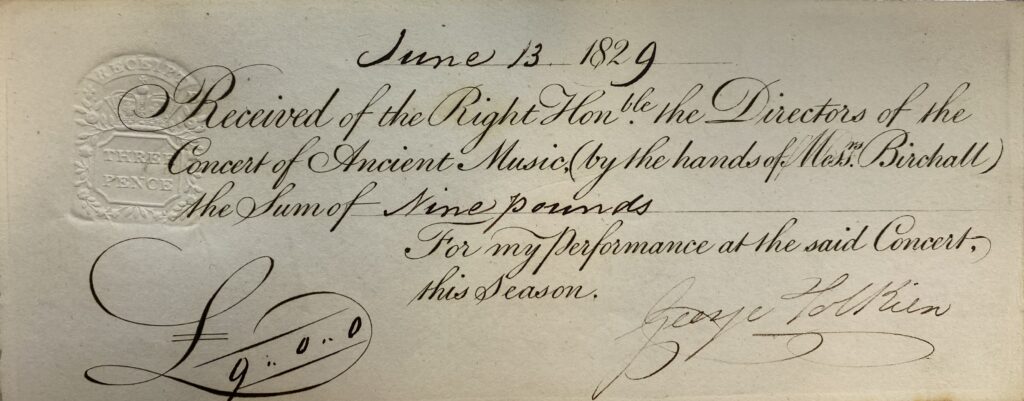 June 13 1829
RECEIPT
Received of the Right Honble. the Directors of the
THREE
Concert of Ancient Music, (by the hands of Messrs. Birchall)
PENCE
the Sum of Nine pounds
For my Performance at the said Concert,
this Season.
£ 9 .. 0 .. 0
George Tolkien